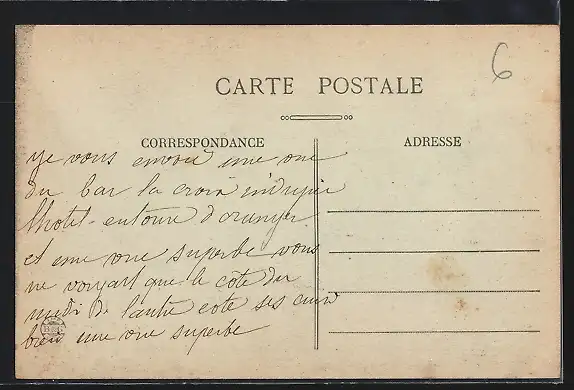 6
CARTE POSTALE
CORRESPONDANCE
ADRESSE
Je vous envoie une vue
du bar la croix
l'hotel entoure d'oranger
et une vue superbe vous
ne voyart que le cote du
midi de lautre cote ses
bien une vue superbe